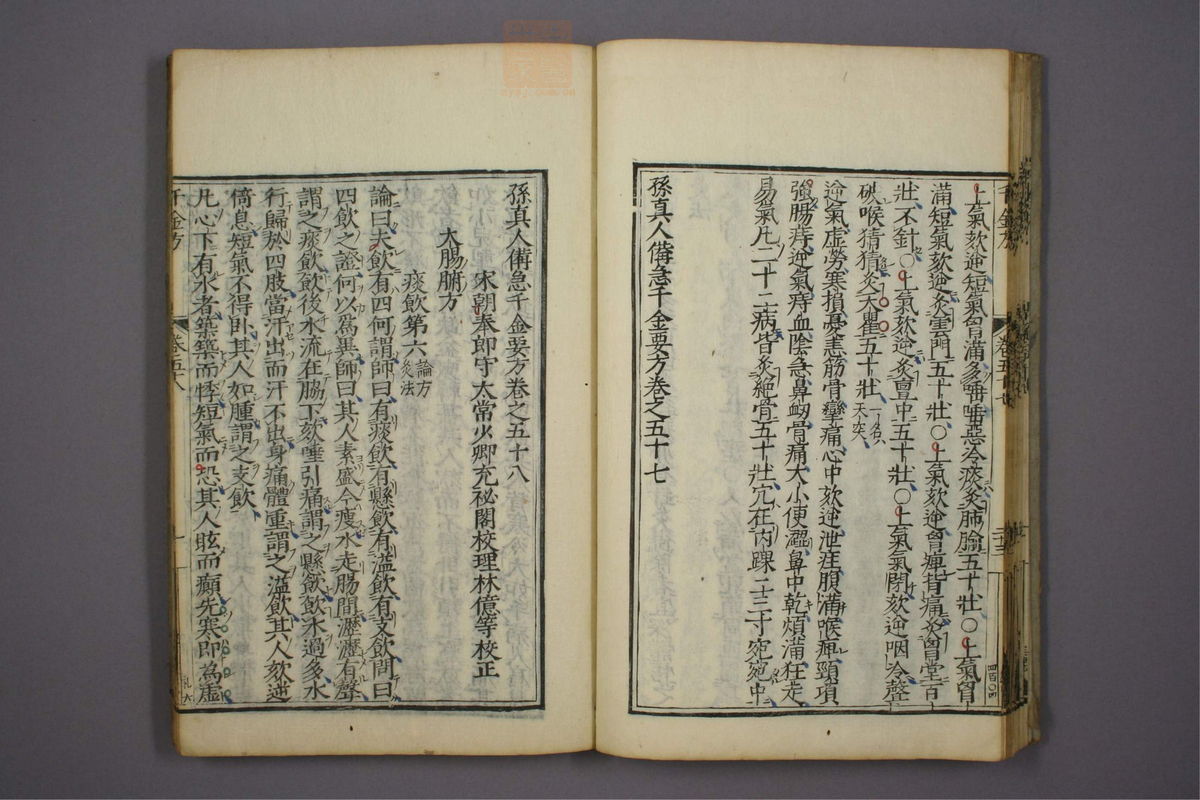 上氣欬逆短氣胷滿多唾唾惡冷痰灸肺腧五十壯○上氣胷
滿短氣欬逆灸雲門五十壯○上氣欬逆胷痹背痛灸胷堂百
壯不針○上氣欬逆灸亶中五十壯○上氣氣閉欬逆咽冷聲
破喉猜猜灸天瞿五十壯一名天突
逆氣虛勞寒損憂恚筋骨攣痛心中欬逆泄注腹滿喉痹頸項
強腸痔逆氣痔血陰急鼻衂骨痛大小便澀鼻中乾煩滿狂走
易氣凡二十二病皆灸絕骨五十壯穴在內踝上三寸宛宛中
孫真人備急千金要方卷之五十七
孫真人備急千金要方卷之五十八
宋朝奉郎守太常少卿充祕閣校理林億等校正
大腸腑方
痰飲第六論方灸法
論曰夫飲有四何謂師曰有痰飲有懸飲有溢飲有支飲問曰
四飲之證何以為異師曰其人素盛今瘦水走腸間瀝瀝有聲
謂之痰飲飲後水流在脇下欬唾引痛謂之懸飲飲水過多水
行歸於四肢當汗出而汗不出身痛體重謂之溢飲其人欬逆
倚息短氣不得臥其人如腫謂之支飲
凡心下有水者築築而悸短氣而恐其人眩而癲先寒即為虛
千金方 卷五八 一